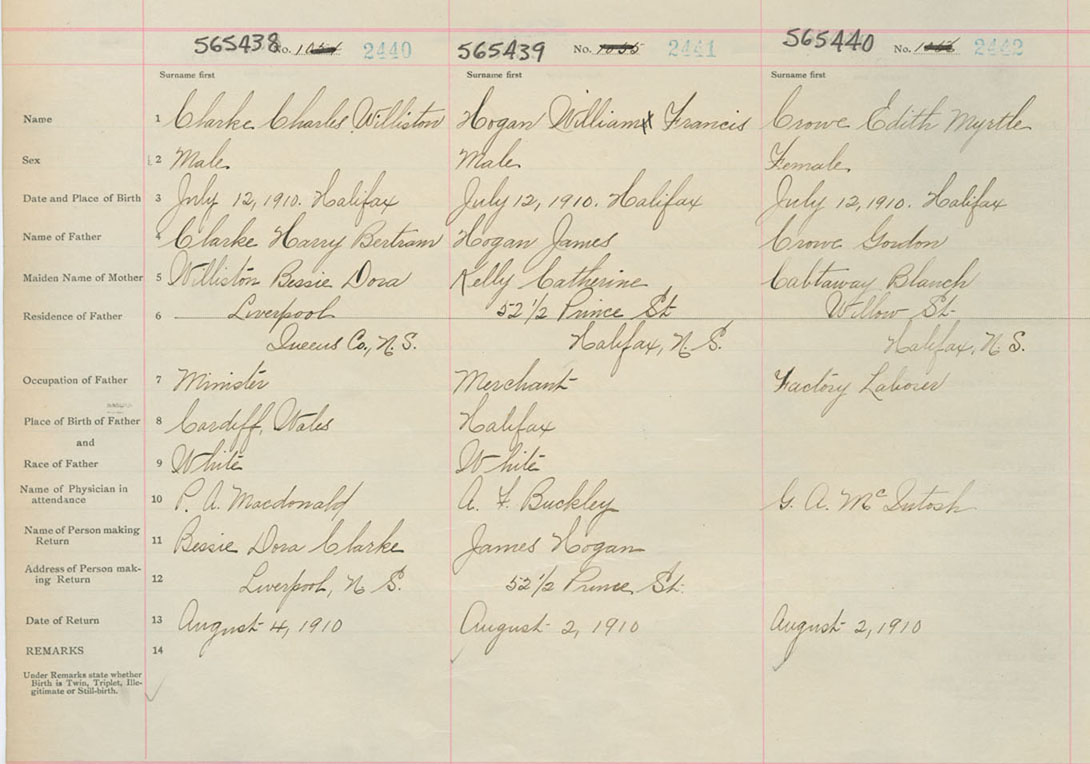 565438 No. 2440 565439 No. 1055 2441 565440 No. 2442
Surname first Surname first Surname first
Name 1 Clarke Charles Williston Hogan William Francis Crowe Edith Myrtle
Sex 2 Male Male Female
Date and Place of Birth 3 July 12, 1910. Halifax July 12, 1910. Halifax July 12, 1910. Halifax
Name of Father 4 Clarke Harry Bertram Hogan James Crowe Gordon
Maiden Name of Mother 5 Williston Bessie Dora Kelly Catherine Blanch
Residence of Father 6 Liverpool 52 1/2 Prince St. Willow St.
Queens Co., N.S. Halifax, N.S. Halifax, N.S.
Occupation of Father 7 Minister Merchant Factory Laborer
Place of Birth of Father 8 Cardiff, Wales Halifax
and
Race of Father 9 White White
Name of Physician in
attendance 10 P. A. Macdonald A. F. Buckley G. A. McIntosh
Name of Person making
Return 11 Bessie Dora Clarke James Hogan
Address of Person mak-
ing Return 12 Liverpool, N.S. 52 1/2 Prince St.
Date of Return 13 August 4, 1910 August 2, 1910 August 2, 1910
REMARKS 14
Under Remarks state whether
Birth is Twin, Triplet, Ille-
gitimate or Still-birth.